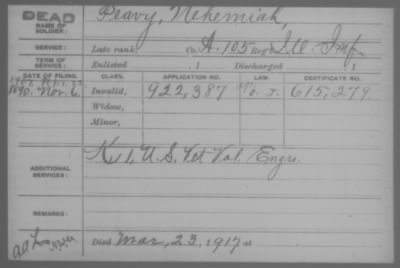 DEAD
NAME OF SOLDIER: Peavy, Nehemiah,
SERVICE: Late rank Co. A. 105 Reg't Ill Inf.
TERM OF SERVICE: Enlisted , 1 Discharged , 1
DATE OF FILING. CLASS. APPLICATION NO. LAW. CERTIFICATE NO.
1890. Nov. 6. Invalid, 922,387 615,279.
Widow,
Minor,
ADDITIONAL SERVICES: K. 1, U.S. Vet Vol. Engrs.
REMARKS:
Died Mar. 23, 1917 at